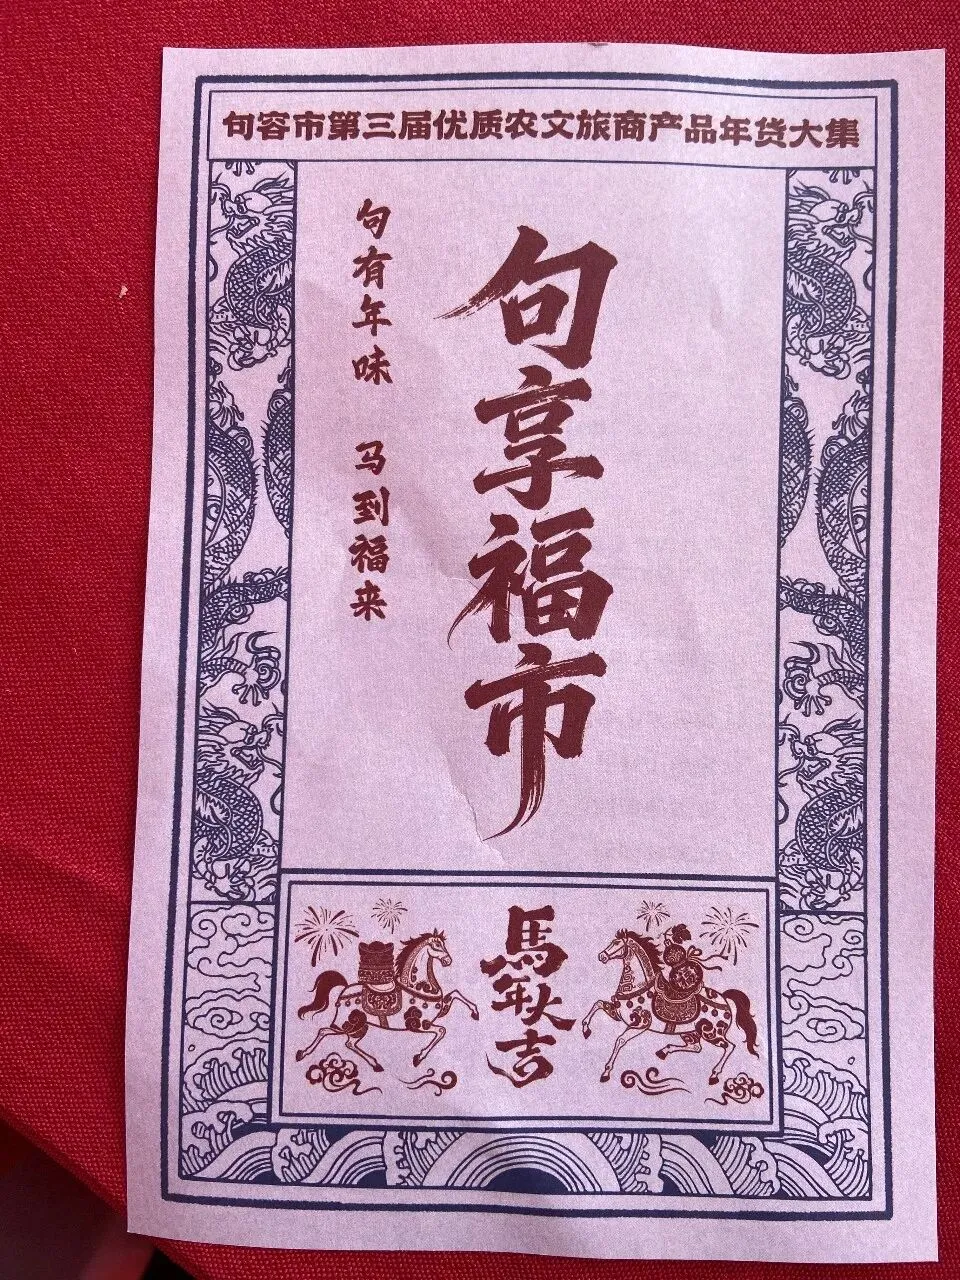 句容市第三届优质农文旅商产品年货大集
句享福市
句有年味 马到福来
馬年大吉